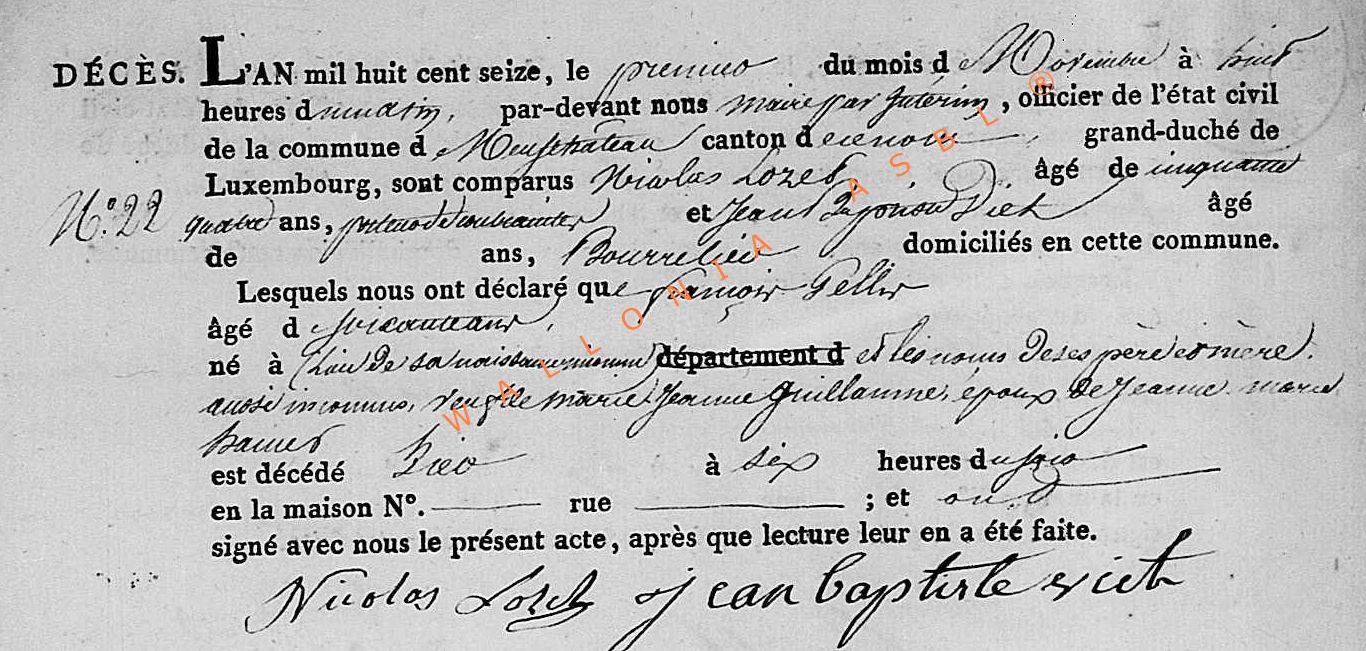 DÉCÈS. L'AN mil huit cent seize, le premier du mois de Novembre à huit
heures du matin, par-devant nous maire par Interim, officier de l'état civil
de la commune de Neufchateau canton de grand-duché de
Luxembourg, sont comparus Nicolas Lozet âgé de cinquante
N.° 22 quatre ans, et Jean Bte Viet âgé
de ans, Bourrelier domiciliés en cette commune.
Lesquels nous ont déclaré que françois Pellir
âgé d
né à (lieu de sa naissance inconnu) département d et les noms de ses père et mère
aussi inconnus, veuf de marie Jeanne Guillaume, époux de Jeanne marie
est décédé hier à six heures du soir
en la maison N°. rue ; et ont
signé avec nous le présent acte, après que lecture leur en a été faite.
Nicolas Lozet jean baptiste viet
WALLONIA ASBL ®